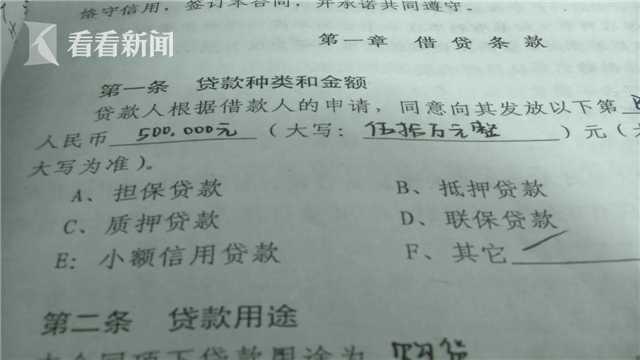 恪守信用，签订本合同，并承诺共同遵守。
看看新闻
第一章 借贷条款
第一条 贷款种类和金额
贷款人根据借款人的申请，同意向其发放以下第 B
人民币 500,000元 （大写： 伍拾万元整 ）元（
大写为准）。
A、担保贷款 B、抵押贷款
C、质押贷款 D、联保贷款
E：小额信用贷款 F、其它
第二条 贷款用途
本合同项下贷款用途为 购货